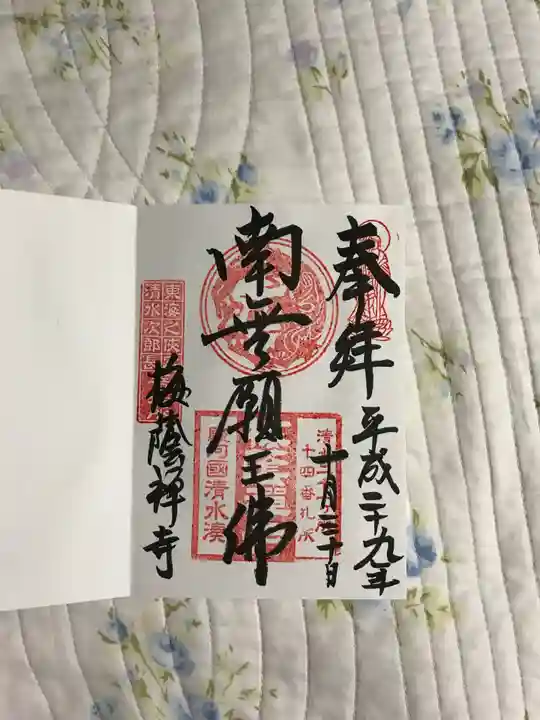 奉拝
平成二十九年
十月三十日
南無願王佛
梅蔭禅寺
東海之侠
清水次郎長
十四番札所
駿河國清水湊